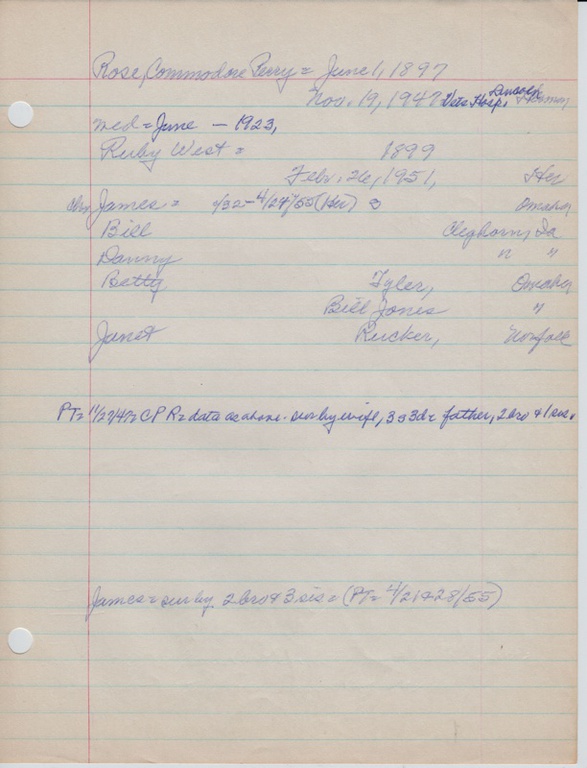 Rose, Commodore Perry = June 1, 1897
Nov. 19, 1947 Vets Hosp. Lincoln
med = June - 1923,
Ruby West = 1899
Febr. 26, 1951, Her
chn James = /32 - 4/24/55 (Her) 3 Omaha
Bill Cleghorn, Ia
Danny " "
Betty Tyler, Omaha
Bill Jones "
Janet Rucker, Norfolk
PT = 11/27/47 = C P R = data as above. sur by wife, 3 s 3 d = father, 2 bro + 1 sis.
James = sur by 2 bro + 3 sis = (PT = 4/21 + 28/55)